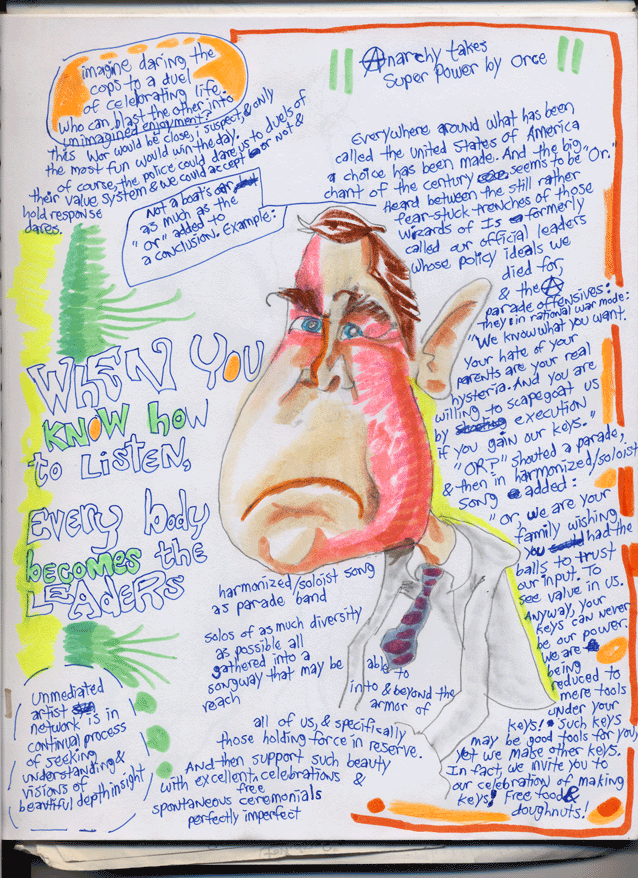 imagine daring the
cops to a duel
of celebrating life.
Who can blast the other into
unimagined enjoyment?
this war would be close, i suspect, & only
the most fun would win the day.
of course, the police could dare us to duels of
their value system & we could accept or not &
hold response
dares.
Not a boat's oar
as much as the
"or" added to
a conclusion. Example:
When You
Know how
to Listen,
Every body
becomes the
Leaders
Unmediated
artist
network is in
continual process
of seeking
understanding &
visions of
beautiful depth insight
harmonized/soloist song
as parade band
solos of as much diversity
as possible all
gathered into a
songway that may be able to
reach into & beyond the
armor of
all of us, & specifically
those holding force in reserve.
And then support such beauty
with excellent celebrations &
free
spontaneous ceremonials
perfectly imperfect
"Anarchy takes
Super Power by Orce"
Everywhere around what has been
called the United States of America
a choice has been made. And the big
chant of the century seems to be "Or."
Heard between the still rather
fear-stuck-trenches of those
wizards of Is formerly
called our official leaders
whose policy ideals we
died for,
& the A
parade offensives:
they: in rational war mode:
"We know what you want.
Your hate of your
parents are your real
hysteria. And you are
willing to scapegoat us
by execution
if you gain our keys."
"OR?" shouted a parade,
& then in harmonized/soloist
song added:
"or we are your
family wishing
you had the
balls to trust
our input. To
see value in us.
Anyway, your
keys can never
be our power.
We are
being
reduced to
mere tools
under your
keys! Such keys
may be good tools for you,
yet we make other keys.
In fact, we invite you to
our celebration of making
keys! Free food &
doughnuts!